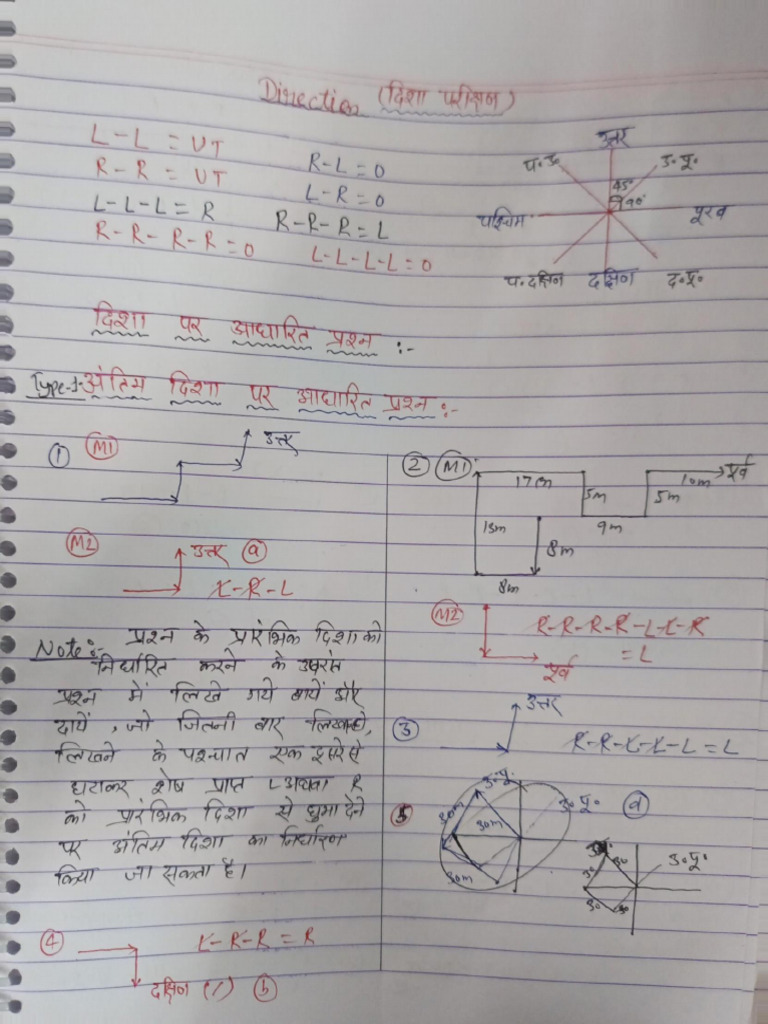 Direction (दिशा परीक्षन)
L-L = UT
R-R = UT
L-L-L = R
R-R-R-R = 0
R-L = 0
L-R = 0
R-R-R = L
L-L-L-L = 0
उत्तर
प.उ.
उ.पू.
45°
90°
पश्चिम
पूरब
प.दक्षिन
दक्षिन
द.पू.
दिशा पर आधारित प्रश्न :-
Type-1- अंतिम दिशा पर आधारित प्रश्न :-
① M1
उत्तर
M2
उत्तर ⓐ
L-R-L
Note:- प्रश्न के प्रारंभिक दिशा को
निर्धारित करने के उपरांत
प्रश्न में लिखे गये बायें और
दायें, जो जितनी बार लिखा हो,
लिखने के पश्चात एक दूसरे से
घटाकर शेष प्राप्त L अथवा R
को प्रारंभिक दिशा से घुमा देने
पर अंतिम दिशा का निर्धारण
किया जा सकता है।
④ L-R-R = R
दक्षिन (/) ⓑ
② M1
17m
5m
9m
5m
10m
पूर्व
13m
8m
8m
M2
R-R-R-R-L-L-R
= L
पूर्व
③
उत्तर
R-R-L-L-L = L
5
उ.पू.
30m
30m
30m
उ.पू.
ⓓ
30
30
30
उ.पू.